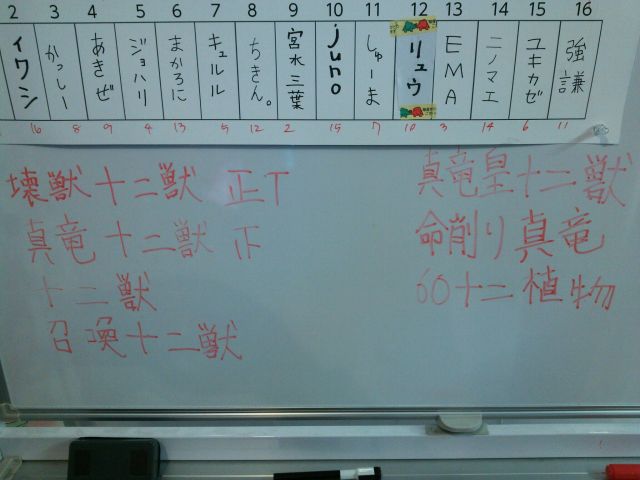 2 3 4 5 6 7 8 9 10 11 12 13 14 15 16
イワシ かっしー あきぜ ジョハリ まかろに キュルル ちきん。 宮水三葉 juno しゅーま リュウ EMA ニノマエ ユキカゼ 強謙
16 8 9 4 13 5 12 2 15 7 10 3 14 6 11
壊獣十二獣 正T
真竜皇十二獣
真竜十二獣 正
命削り真竜
十二獣
60十二植物
召喚十二獣